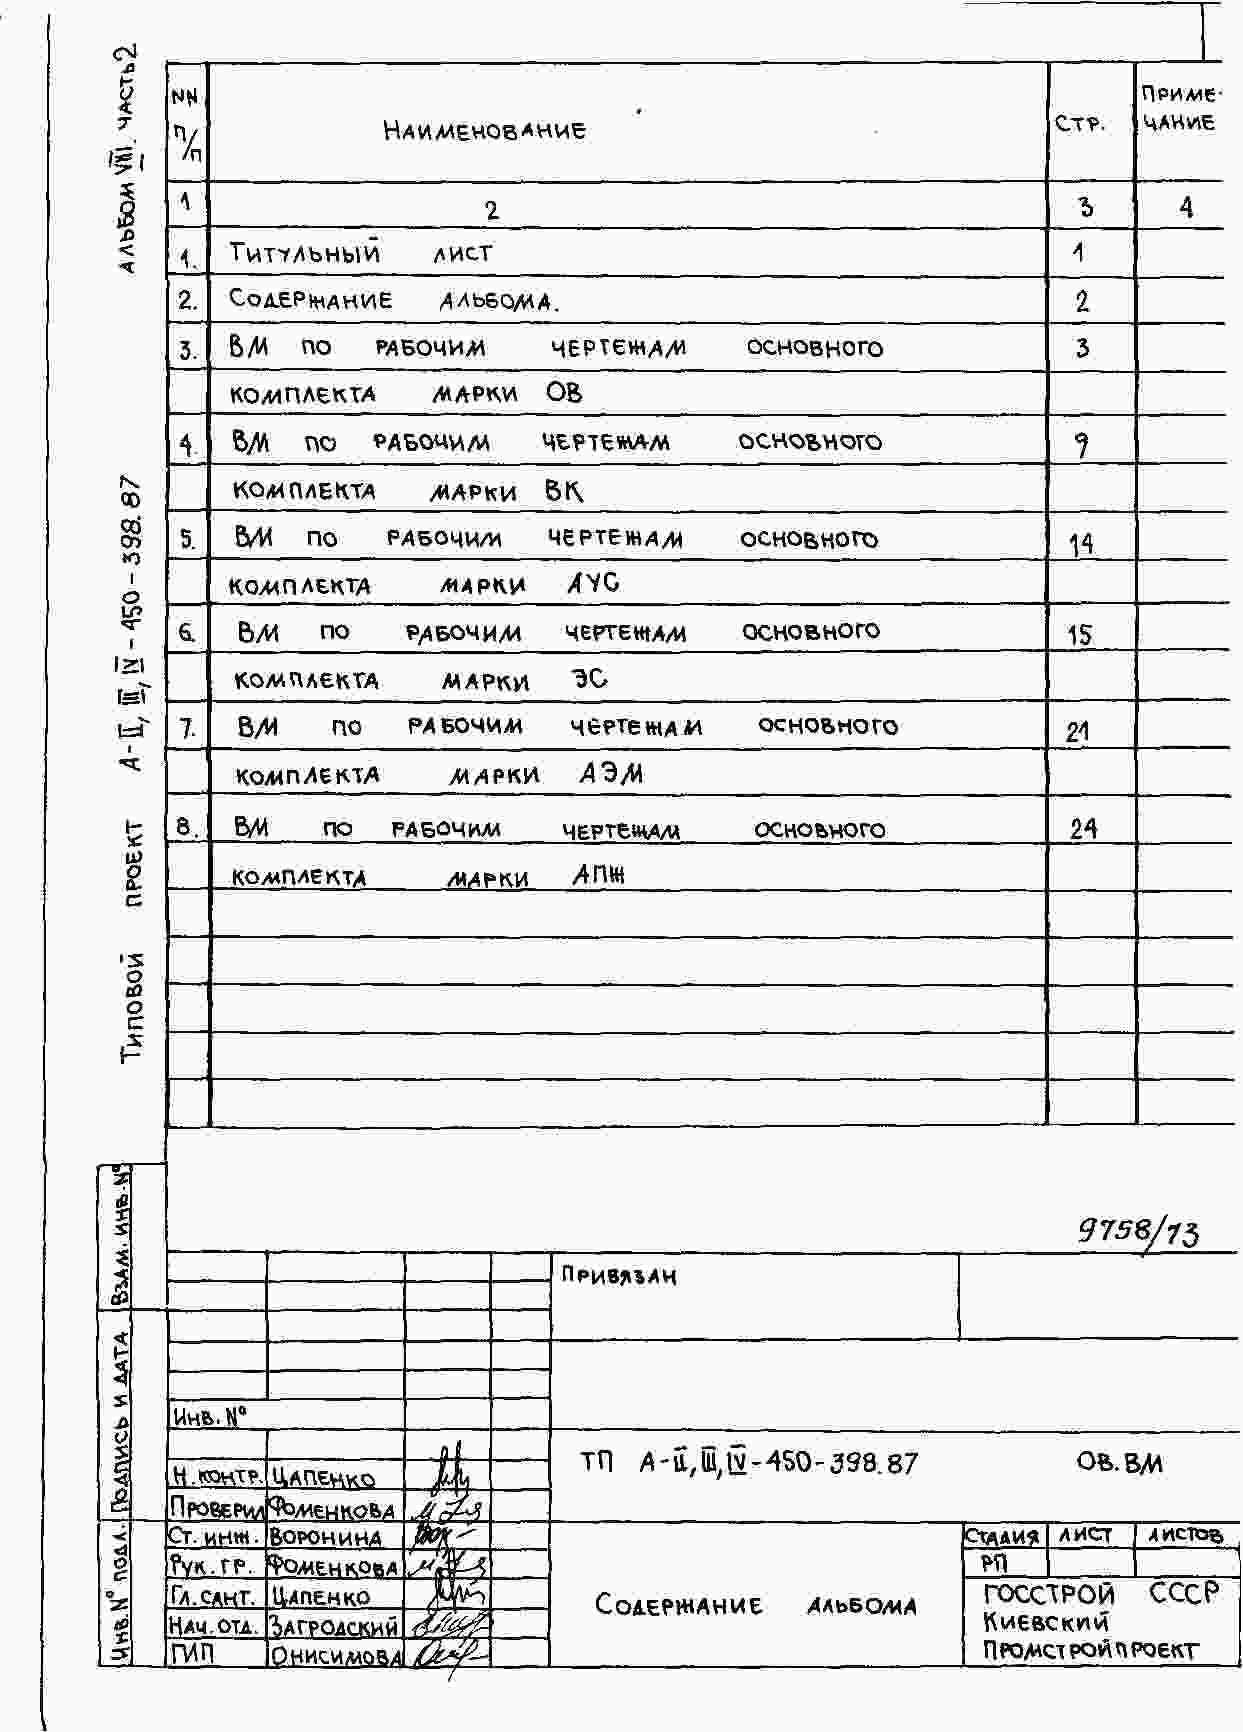 Типовой проект А-II, III, IV-450-398.87 Альбом VIII. часть 2
NN п/п Наименование Стр. Приме-чание
1 2 3 4
1. Титульный лист 1
2. Содержание альбома. 2
3. ВМ по рабочим чертежам основного 3
комплекта марки ОВ
4. ВМ по рабочим чертежам основного 9
комплекта марки ВК
5. ВМ по рабочим чертежам основного 14
комплекта марки АУС
6. ВМ по рабочим чертежам основного 15
комплекта марки ЭС
7. ВМ по рабочим чертежам основного 21
комплекта марки АЭМ
8. ВМ по рабочим чертежам основного 24
комплекта марки АПЖ
9758/13
Взам. инв. №
Подпись и дата
Инв. № подл.
Привязан
Инв. №
ТП А-II, III, IV-450-398.87 ОВ.ВМ
Н. контр. Цапенко
Проверил Фоменкова
Ст. инж. Воронина
Рук. гр. Фоменкова
Гл. сант. Цапенко
Нач. отд. Загродский
ГИП Онисимова
Содержание альбома
Стадия Лист Листов
РП
Госстрой СССР
Киевский
Промстройпроект